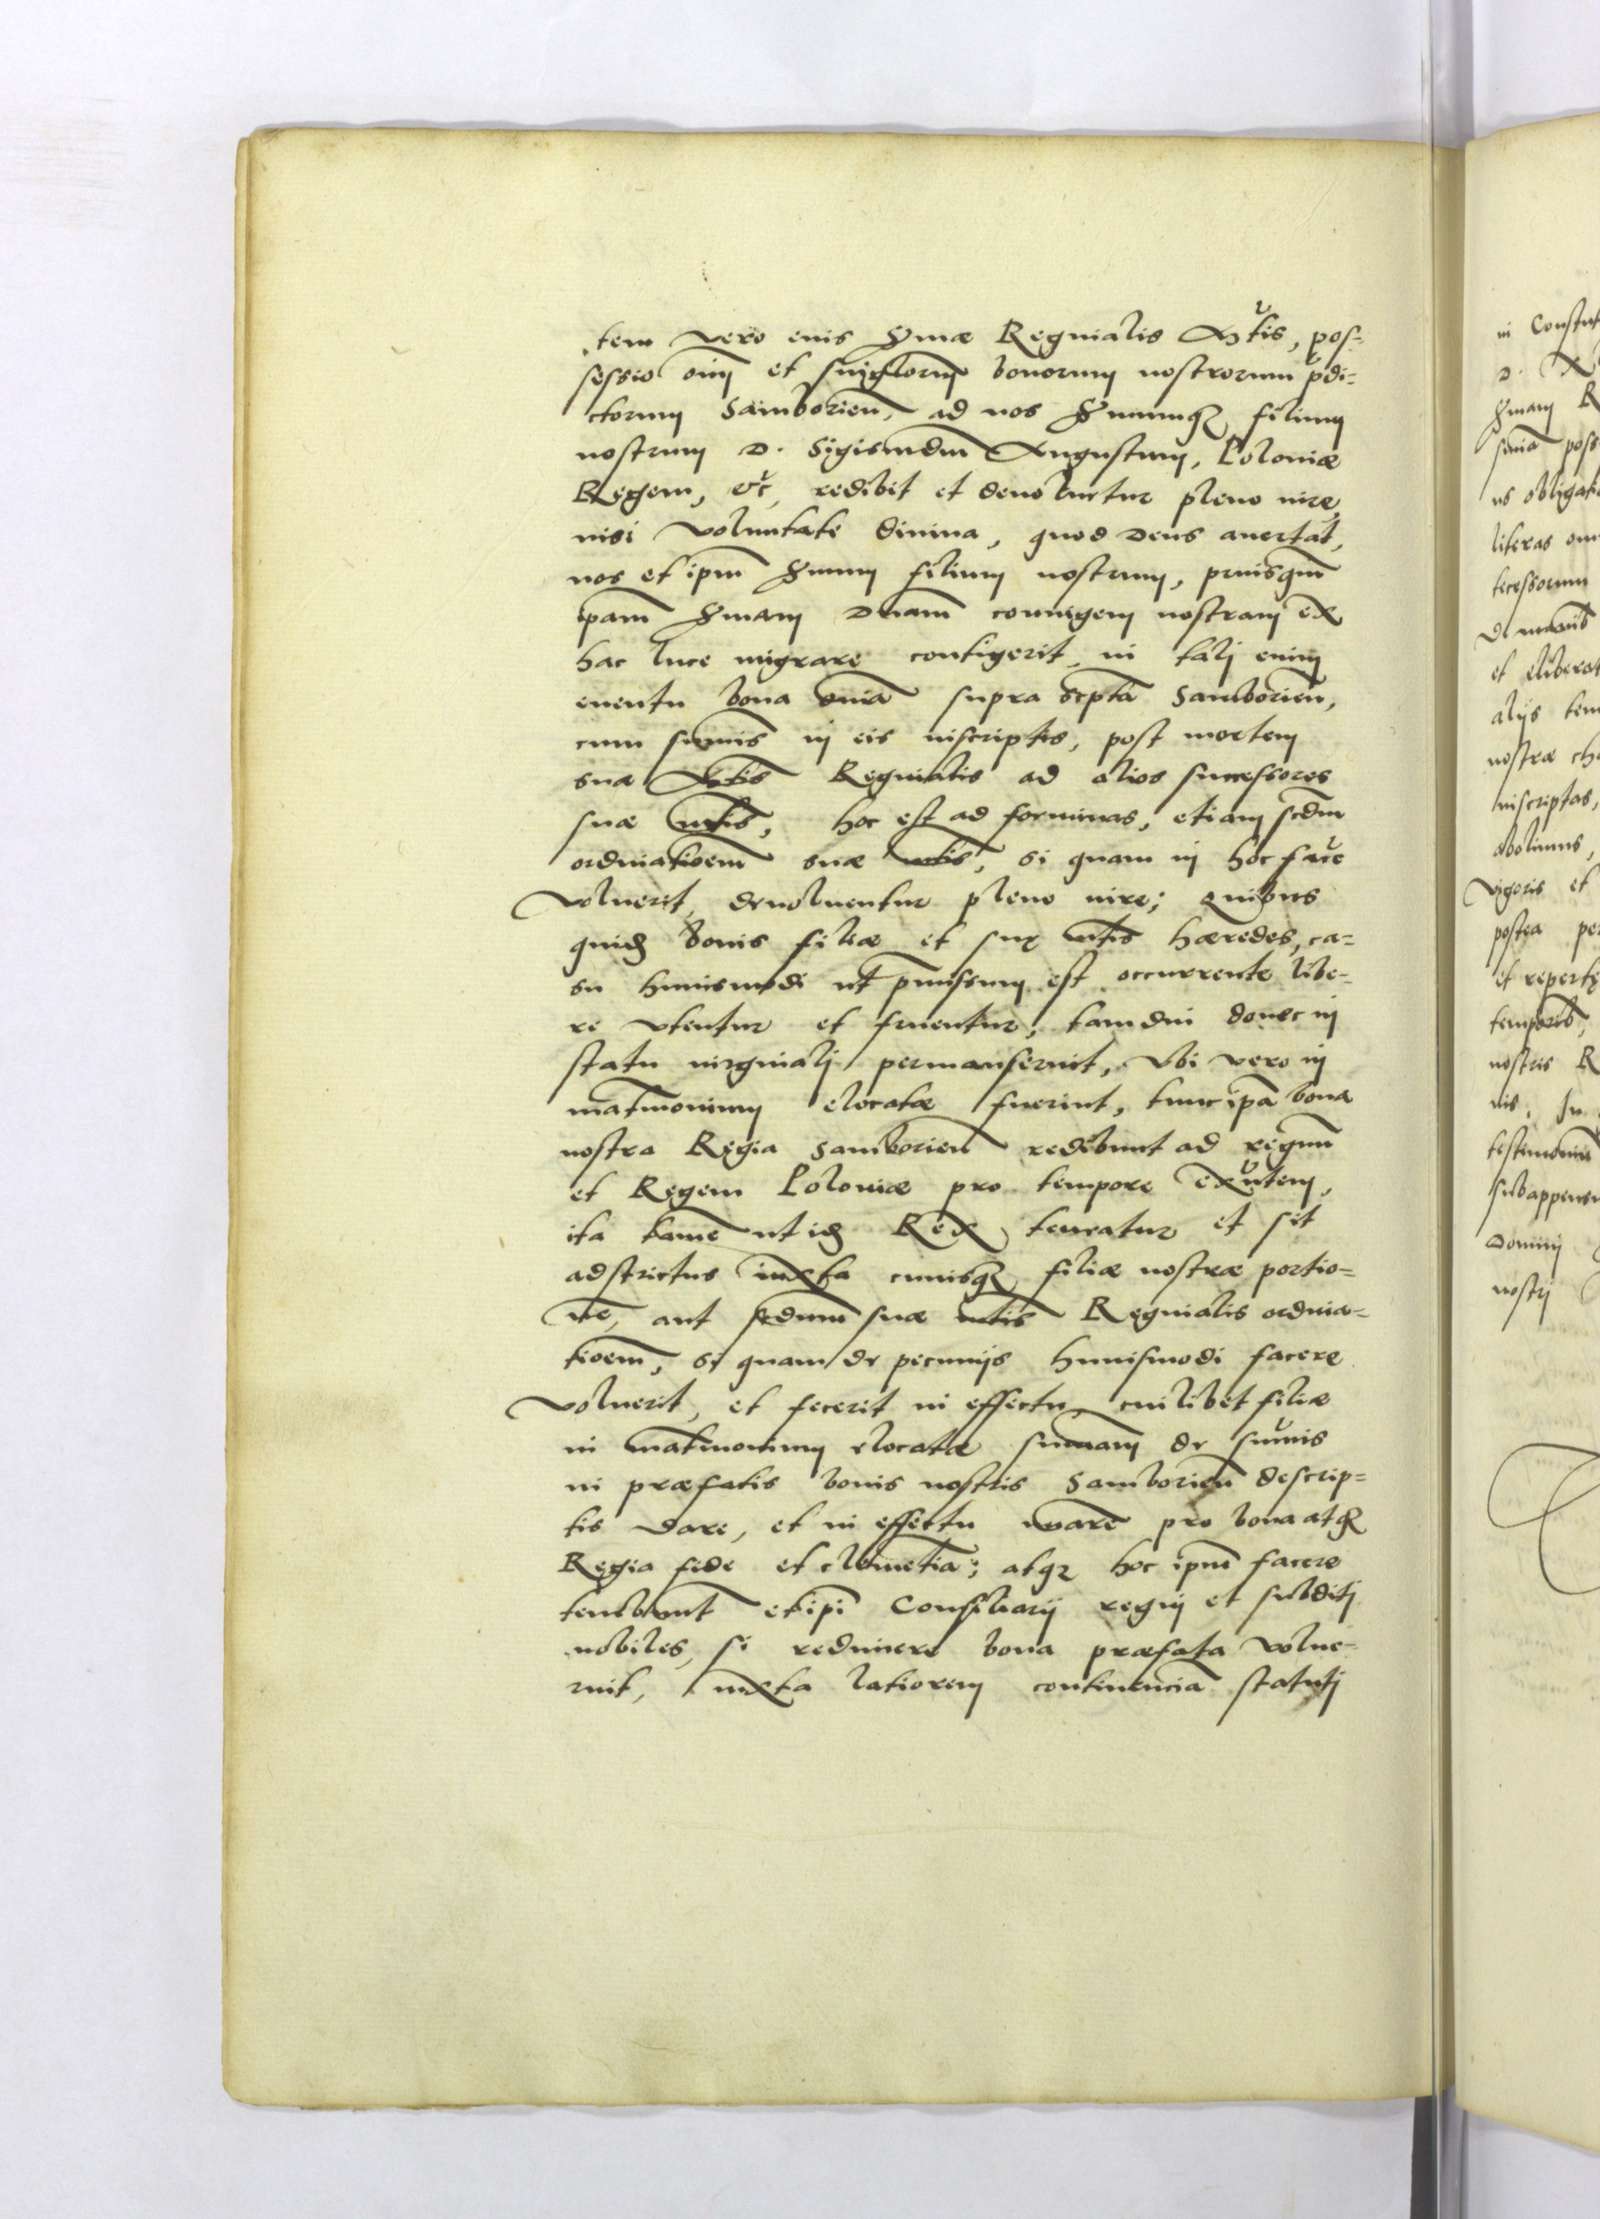 tem vero eius Sermæ Reginalis Mtis, pos=
sessio oim et singlorum bonorum nostrorum pdi=
ctorum Samborien, ad nos Sermumq filium
nostrum D. Sigismdum Augustum, Poloniæ
Regem, etc, redibit et devoluetur pleno iure,
nisi voluntate divina, quod Deus auertat,
nos et ipm Sermum filium nostrum, priusqm
ipam Sermam Dnam coniugem nostram ex
hac luce migrare contigerit, in talj enim
euentu bona omia supra scpta Samborien,
cum summis in eis inscriptis, post mortem
suæ Mtis Reginalis ad alios successores
suæ mtis, hoc est ad foeminas, etiam scdm
ordinatioem suæ mtis, si quam in hoc face
voluerit, deuoluentur pleno iure; quibus
quid bonis filiæ et suę mtis hæredes, ca=
su huiusmodi ut pmissum est occurrente libe=
re vtentur et fruentur, tamdiu donec in
statu virginalj permanserint, Vbi vero in
matmonium elocatæ fuerint, tunc ipa bona
nostra Regia Samborien redibunt ad regnum
et Regem Poloniæ pro tempore exntem,
ita tame ut id Rex teneatur et sit
adstrictus iuxta cuiusq filiæ nostræ portio=
ne, aut scdum suæ mtis Reginalis ordina=
tioem, si quam de pecunijs huiusmodi facere
voluerit, et fecerit in effectu, cuilibet filiæ
in matmonium elocatæ summam de summis
in præfatis bonis nostris Samborien descrip=
tis dare, et in effectu nuare pro bona atq
Regia fide et clemetia; atq hoc ipm facere
tenebunt et ipi Consiliarij regni et subditj
nobiles, si redimere bona præfata volue=
rint, iuxta latiorem continencia statutj
in Constit
D.
Sermam R
poss
us obligati
literas om
tecessorum
et liberat
alijs tem
nostræ ch
inscriptas,
abolimus,
vigoris et
postea per
et repertę
temporis,
nostris R
nis. In
testimonium
subappens
Dominj
nostrj